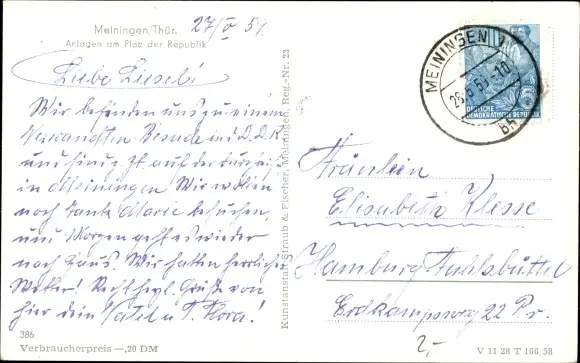 Meiningen/Thür. 27/V 59.
Anlagen am Platz der Republik
Liebe Liesel!
Wir befinden uns zu einem
Verwandten Besuche in d. D.D.R
und sind z. Zt. auf der Durchreise
in Meiningen Wir wollen
noch Tante Marie besuchen,
und Morgen geht es wieder
nach Haus. Wir hatten herrliches
Wetter! Recht herzl. Grüße von
hier Dein Onkel u. T. Flora!
386
Verbraucherpreis —,20 DM
Kunstanstalt Straub & Fischer, Meiningen, Reg.-Nr. 23
MEININGEN 1
DEUTSCHE
DEMOKRATISCHE REPUBLIK
Fräulein
Elisabeth Klesse
Hamburg Fuhlsbüttel
Erdkampsweg 22 Pr.
2,-
V 11 28 T 166 58